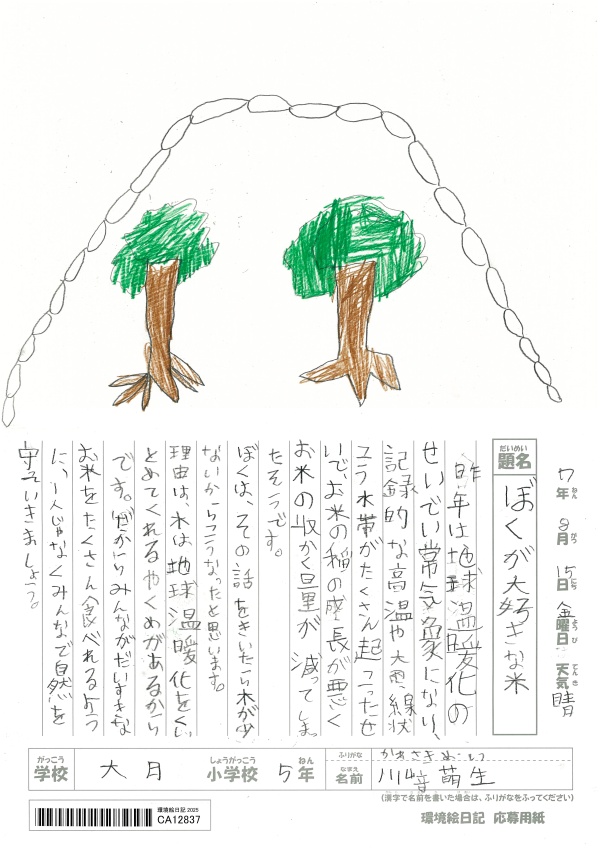 7年 8月 15日 金曜日 天気 晴
ねん がつ にち ようび てんき
だいめい
題名 ぼくが大好きな米
昨年は地球温暖化の
せいでい常気象になり、
記録的な高温や大雨、線状
こう水帯がたくさん起こったせ
いで、お米の稲の成長が悪く
お米の収かく量が減ってしま
たそうです。
ぼくは、その話をきいたら木が少
ないからこうなったと思います。
理由は、木は地球温暖化をくい
とめてくれるやくめがあるから
です。だからみんながだいすきな
お米をたくさん食べれるよう
に、一人じゃなくみんなで自然を
守っていきましょう。
がっこう
学校 大月 小学校 5年
しょうがっこう ねん
ふりがな
なまえ
名前 川音萌生
(漢字で名前を書いた場合は、ふりがなをふってください)
環境絵日記 2025
CA12837
環境絵日記 応募用紙